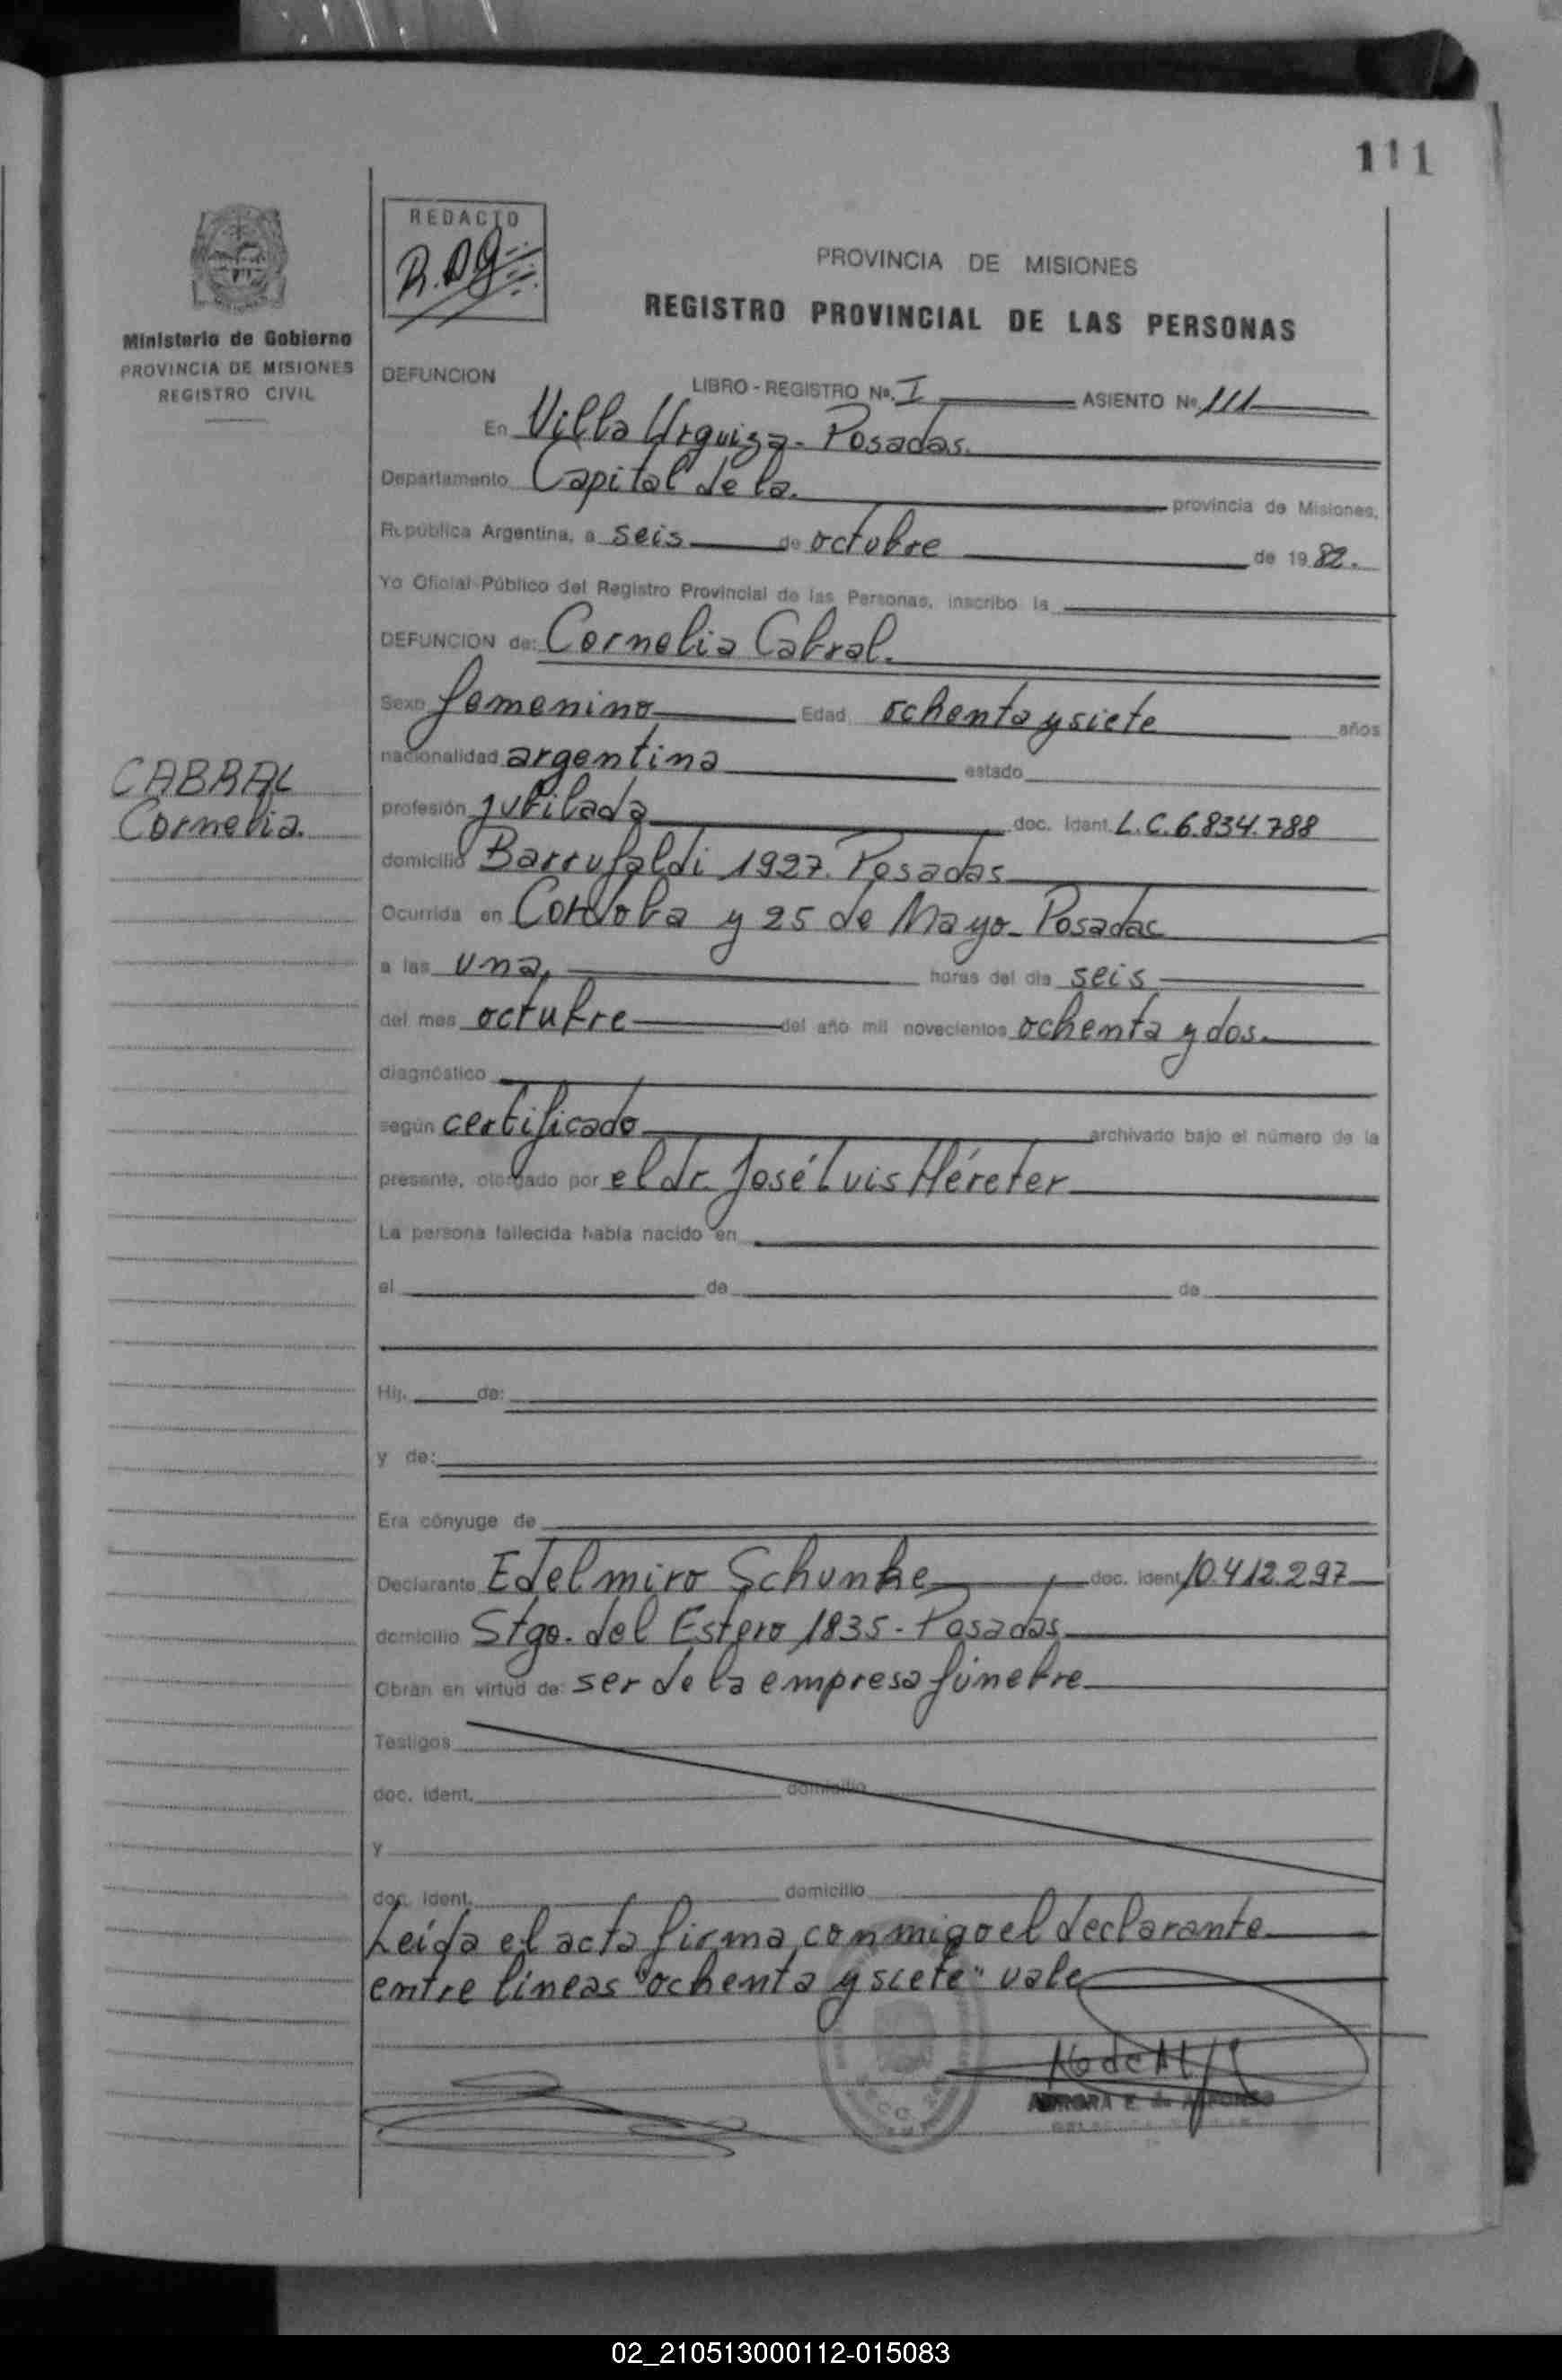 111
REDACTO
PROVINCIA DE MISIONES
REGISTRO PROVINCIAL DE LAS PERSONAS
Ministerio de Gobierno
PROVINCIA DE MISIONES
REGISTRO CIVIL
DEFUNCION LIBRO - REGISTRO No. I ASIENTO No 111
En Villa Urquiza - Posadas.
Departamento Capital de la. provincia de Misiones,
República Argentina, a seis de octubre de 19 82.
Yo Oficial Público del Registro Provincial de las Personas, inscribo la
DEFUNCION de: Cornelia Cabral.
Sexo femenino Edad ochenta y siete años
nacionalidad argentina estado
CABRAL
Cornelia.
profesión jubilada doc. ident. L.C. 6.834.788
domicilio Barrufaldi 1927. Posadas
Ocurrida en Cordoba y 25 de Mayo - Posadas
a las una, horas del día seis
del mes octubre del año mil novecientos ochenta y dos.
diagnóstico
según certificado archivado bajo el número de la
presente, otorgado por el dr. José Luis Héreter
La persona fallecida había nacido en
el de de
Hij. de:
y de:
Era cónyuge de
Declarante Edelmiro Schunke doc. ident. 10.412.297
domicilio Stgo. del Estero 1835 - Posadas
Obran en virtud de: ser de la empresa fúnebre
Testigos
doc. ident. domicilio
y
doc. ident. domicilio
Leída el acta firma conmigo el declarante
entre líneas "ochenta y siete" vale
AURORA E. de ALFONSO
02_210513000112-015083